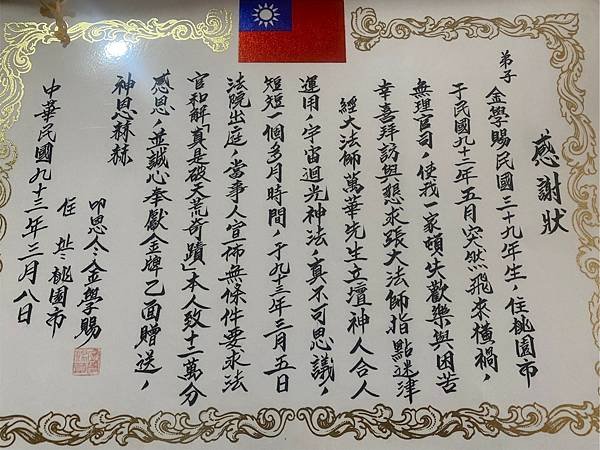 感謝狀
弟子 金學賜民國三十九年生，住桃園市
于民國九十二年五月突然飛來橫禍，
無理官司，使我一家頓失歡樂與困苦
幸喜拜訪與懇求張大法師指點迷津
經大法師萬華先生立壇神人合人
運用，宇宙迴光神法，真不可思議，
短短一個多月時間，于九十三年三月五日
法院出庭，當事人宣佈無條件要求法
官和解「真是破天荒奇蹟」本人致十二萬分
感恩，並誠心奉獻金牌乙面贈送，
神恩赫赫
叩恩人金學賜
住 桃園市
中華民國九十三年三月八日